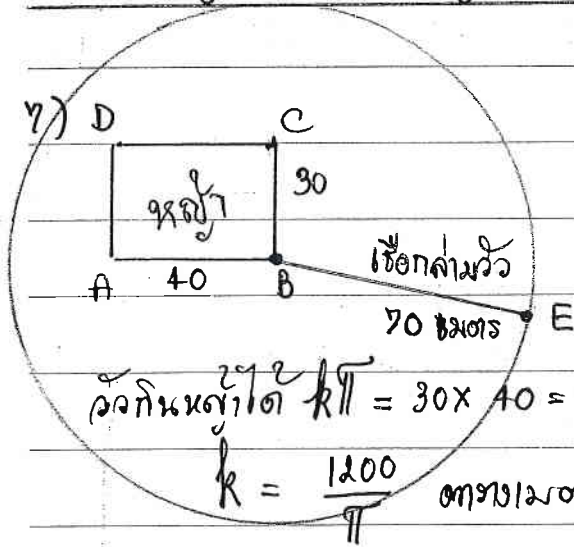 7) D C
หญ้า 30
A 40 B
เชือกล่ามวัว
70 เมตร E
วัวกินหญ้าได้ kπ = 30 × 40 =
k = 1200/π ตารางเม